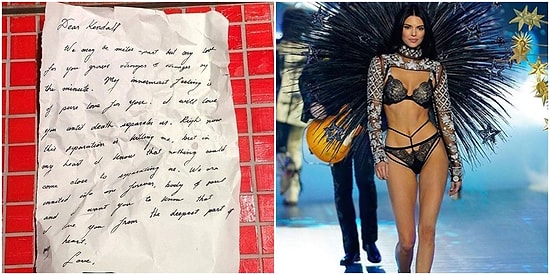 Dear Kendall
We may be miles apart but my love
for you grows stronger & stronger by
the minute. My innermost feeling is
of pure love for you. I will love
you until death separates us. Right now
this separation is killing me, but in
my heart I know that nothing could
come close to separating us. We are
united as one forever, body & soul
and I want you to know that
I love you from the deepest part of
heart.
Love,